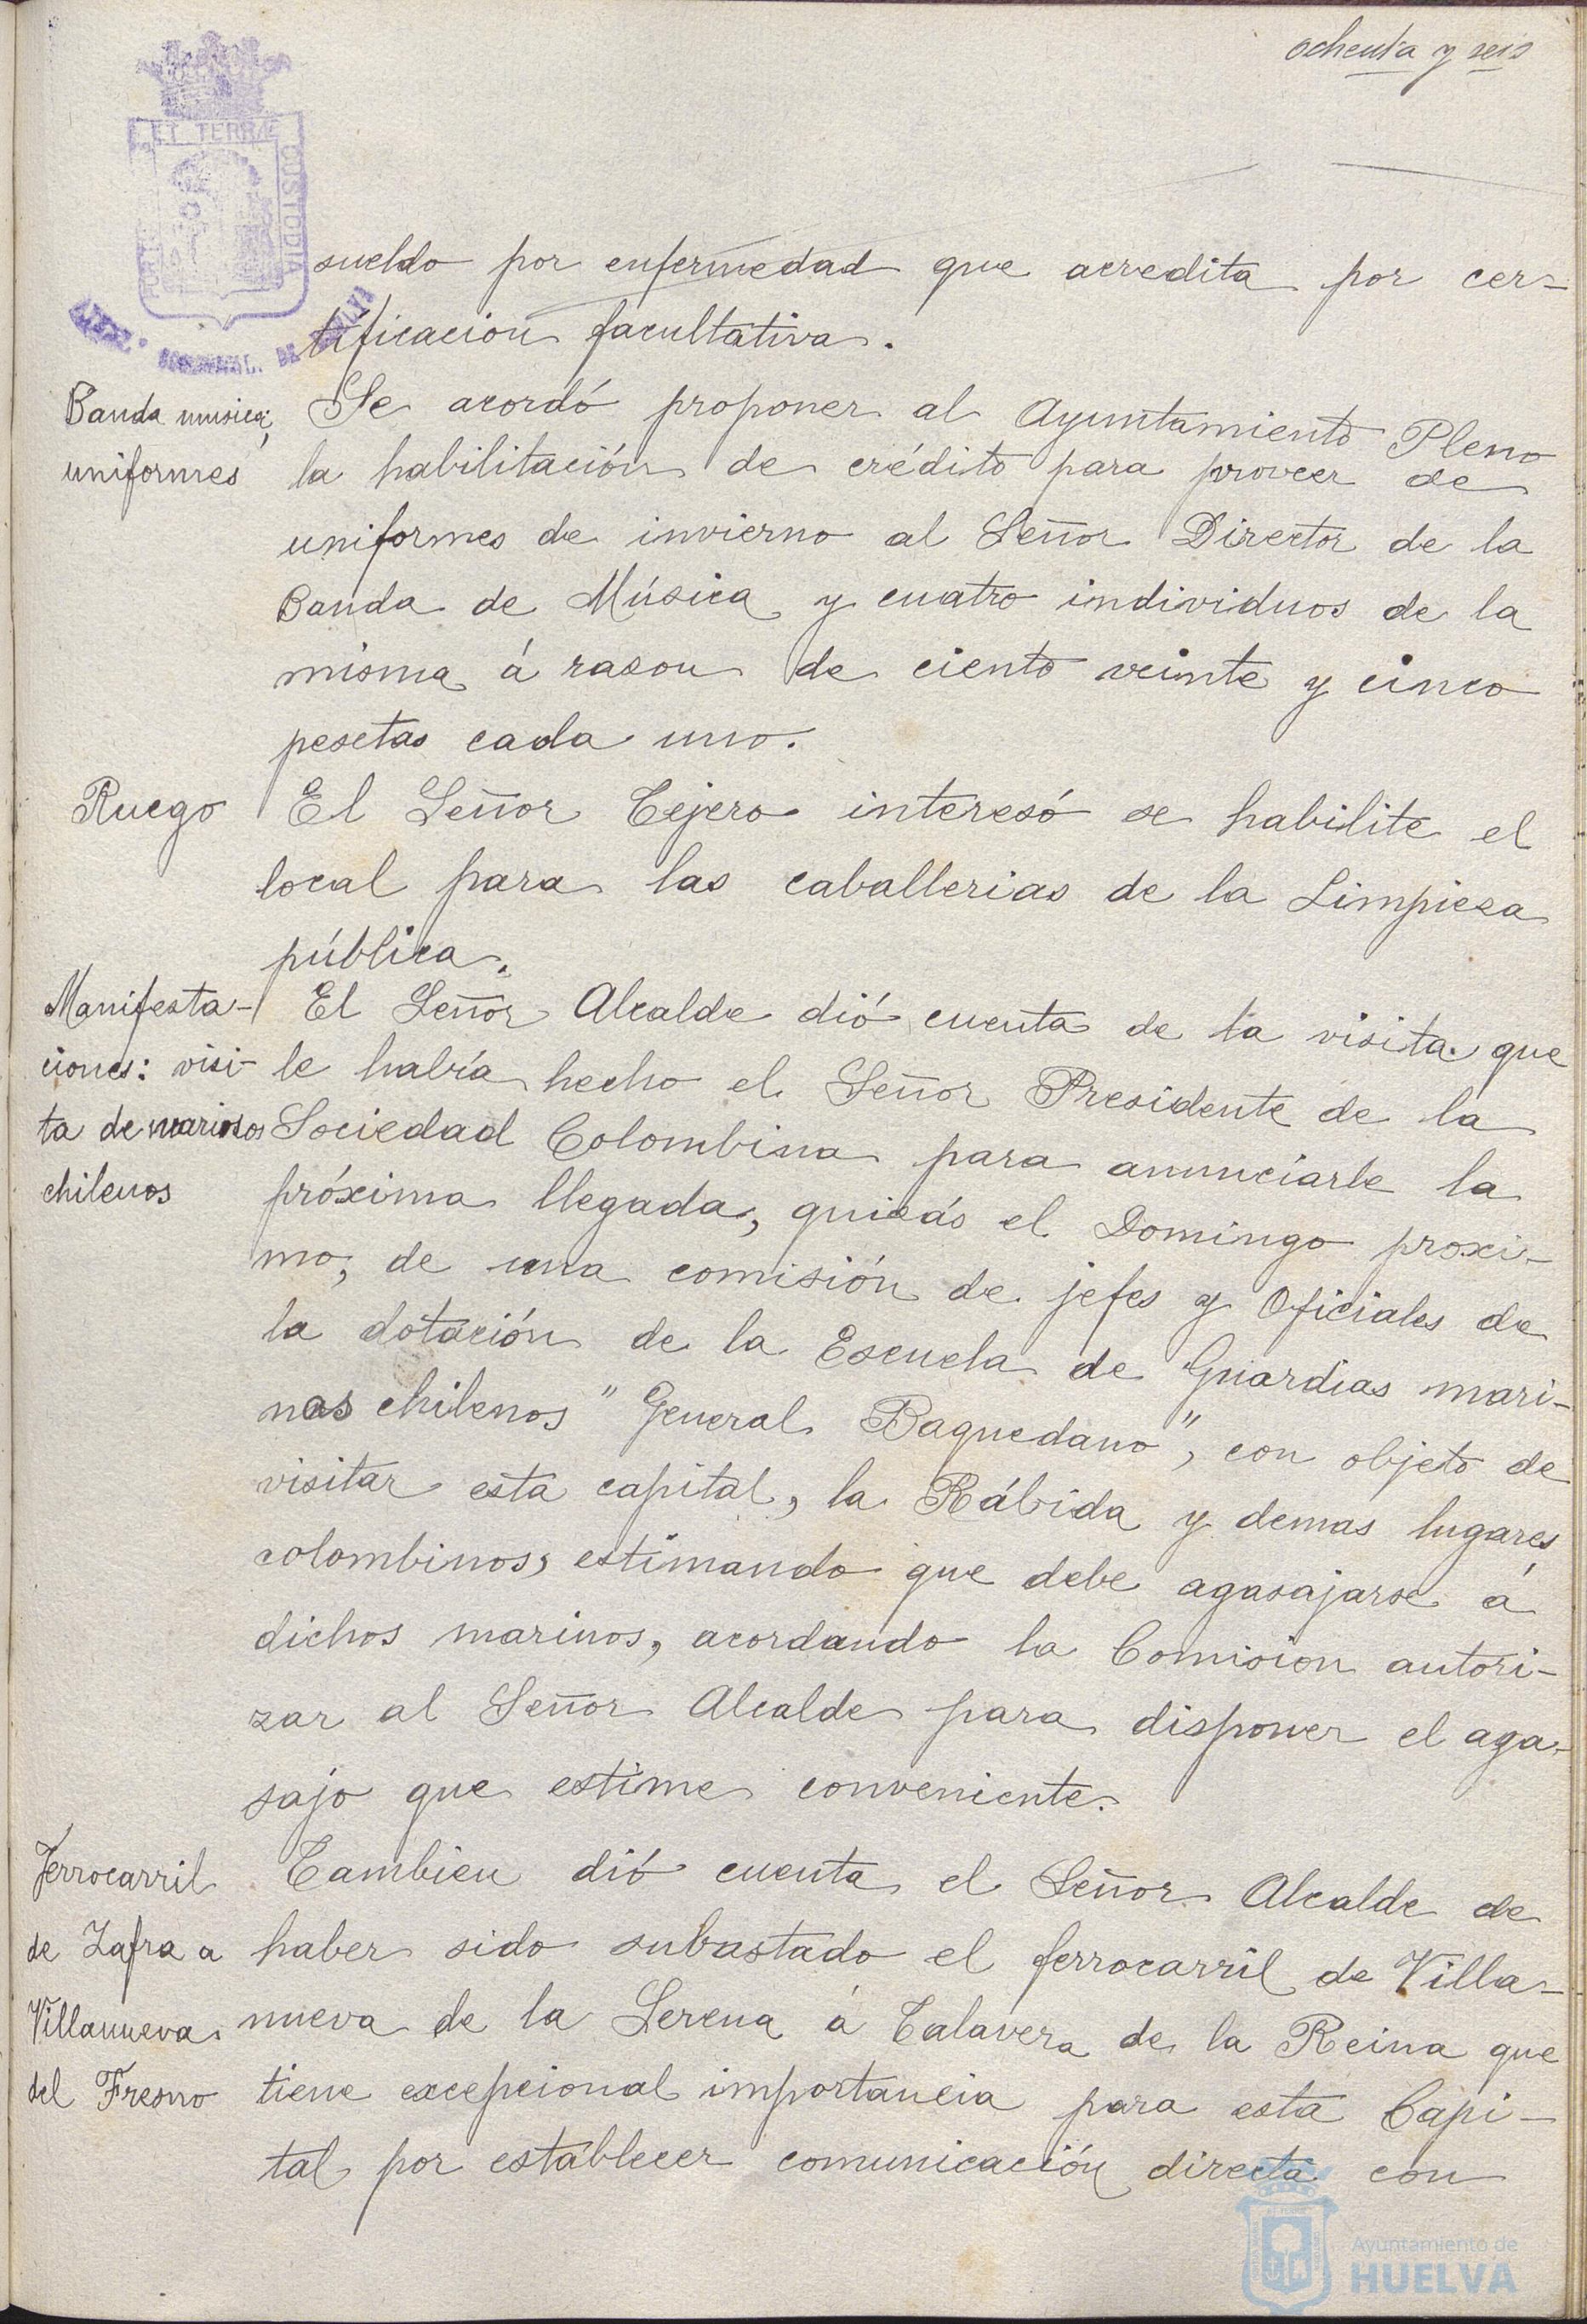 ochenta y seis
ET TERRÆ
CUSTODIA
sueldo por enfermedad que acredita por cer-
tificación facultativa.
Banda musica;
uniformes
Se acordó proponer al Ayuntamiento Pleno
la habilitación de crédito para proveer de
uniformes de invierno al Señor Director de la
Banda de Música y cuatro individuos de la
misma á rason de ciento veinte y cinco
pesetas cada uno.
Ruego
El Señor Tejero interesó se habilite el
local para las caballerias de la Limpieza
pública.
Manifesta-
ciones: visi-
ta de marinos
chilenos
El Señor Alcalde dió cuenta de la visita que
le había hecho el Señor Presidente de la
Sociedad Colombina para anunciarle la
próxima llegada, quizás el Domingo proxi-
mo, de una comisión de jefes y Oficiales de
la dotación de la Escuela de Guardias mari-
nas chilenos "General Baquedano", con objeto de
visitar esta capital, la Rábida y demas lugares
colombinos, estimando que debe agasajarse á
dichos marinos, acordando la Comision autori-
zar al Señor Alcalde para disponer el aga-
sajo que estime conveniente.
Ferrocarril
de Zafra a
Villanueva
del Fresno
Tambien dió cuenta el Señor Alcalde de
haber sido subastado el ferrocarril de Villa-
nueva de la Serena á Talavera de la Reina que
tiene excepcional importancia para esta Capi-
tal por establecer comunicación directa con
Ayuntamiento de
HUELVA